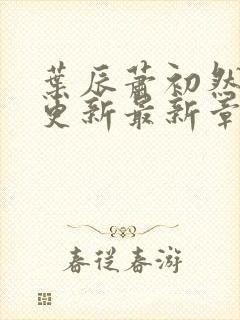 葉辰蕭初然
更新最新章
春從春游